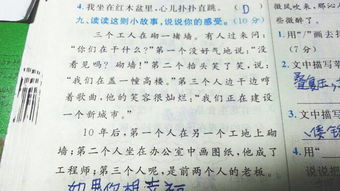 4.我坐在红木盆里,心儿扑扑直跳。 (D)
九、读读这则小故事,说说你的感受。(10分)
三个工人在砌一堵墙。有人过来问:
“你们在干什么?”第一个没好气地说:“没
看见吗?砌墙!”第二个抬头笑了笑,说:
“我们在盖一幢高楼。”第三个人边干边哼
着歌曲,他的笑容很灿烂:“我们正在建设
一个新城市。”
10年后,第一个人在另一个工地上砌
墙;第二个人坐在办公室中画图纸,他成了
工程师;第三个人呢,是前两个人的老板。
如果你想幸福
微风吹来,那沁
些微醉了。
用“/”画去括
(7分)
2.文中描写
3.文中描写
4.用“
说说把